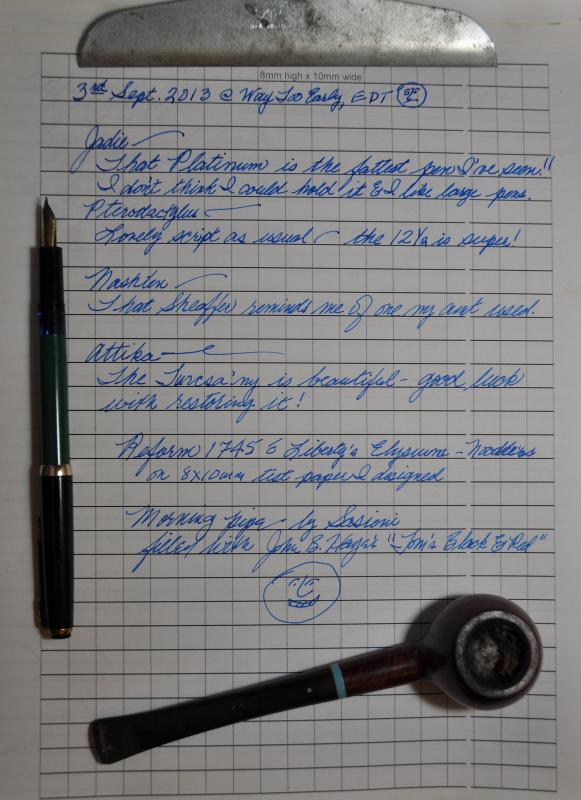 8mm high x 10mm wide
3rd Sept. 2013 @ Way Too Early, EDT
Jadie
That Platinum is the fattest pen I've seen!!
I don't think I could hold it & I like large pens.
Pterodactylus
Lovely script as usual - the 12½ is super!
Nashten
That Sheaffer reminds me of one my aunt used.
Attika
The Turcsa'ny is beautiful - good luck
with restoring it!
Reform 1745 & Liberty's Elysium - Noodlers
on 8x10mm test paper I designed
Morning pipe - by Sasieni
filled with John B. "Tom's Black & Red"